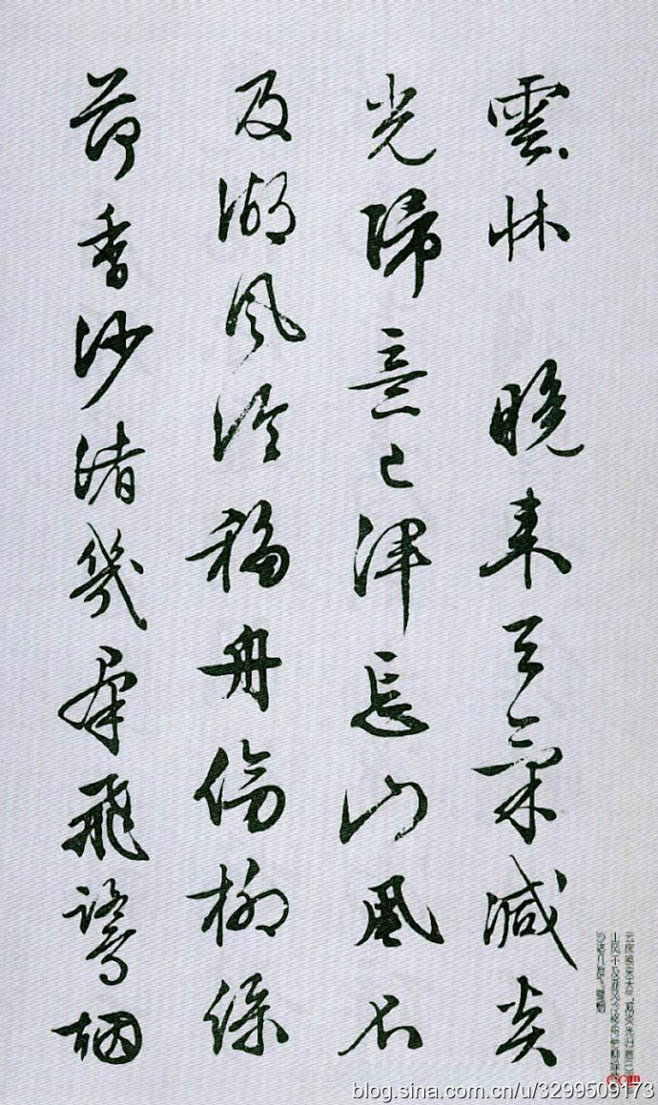 雲牀 晚来天氣減炎
光歸意已津忘山風不
及湖風冷移舟傍柳綠
荷香沙渚幾群飛鷺烟
blog.sina.com.cn/u/3299509173